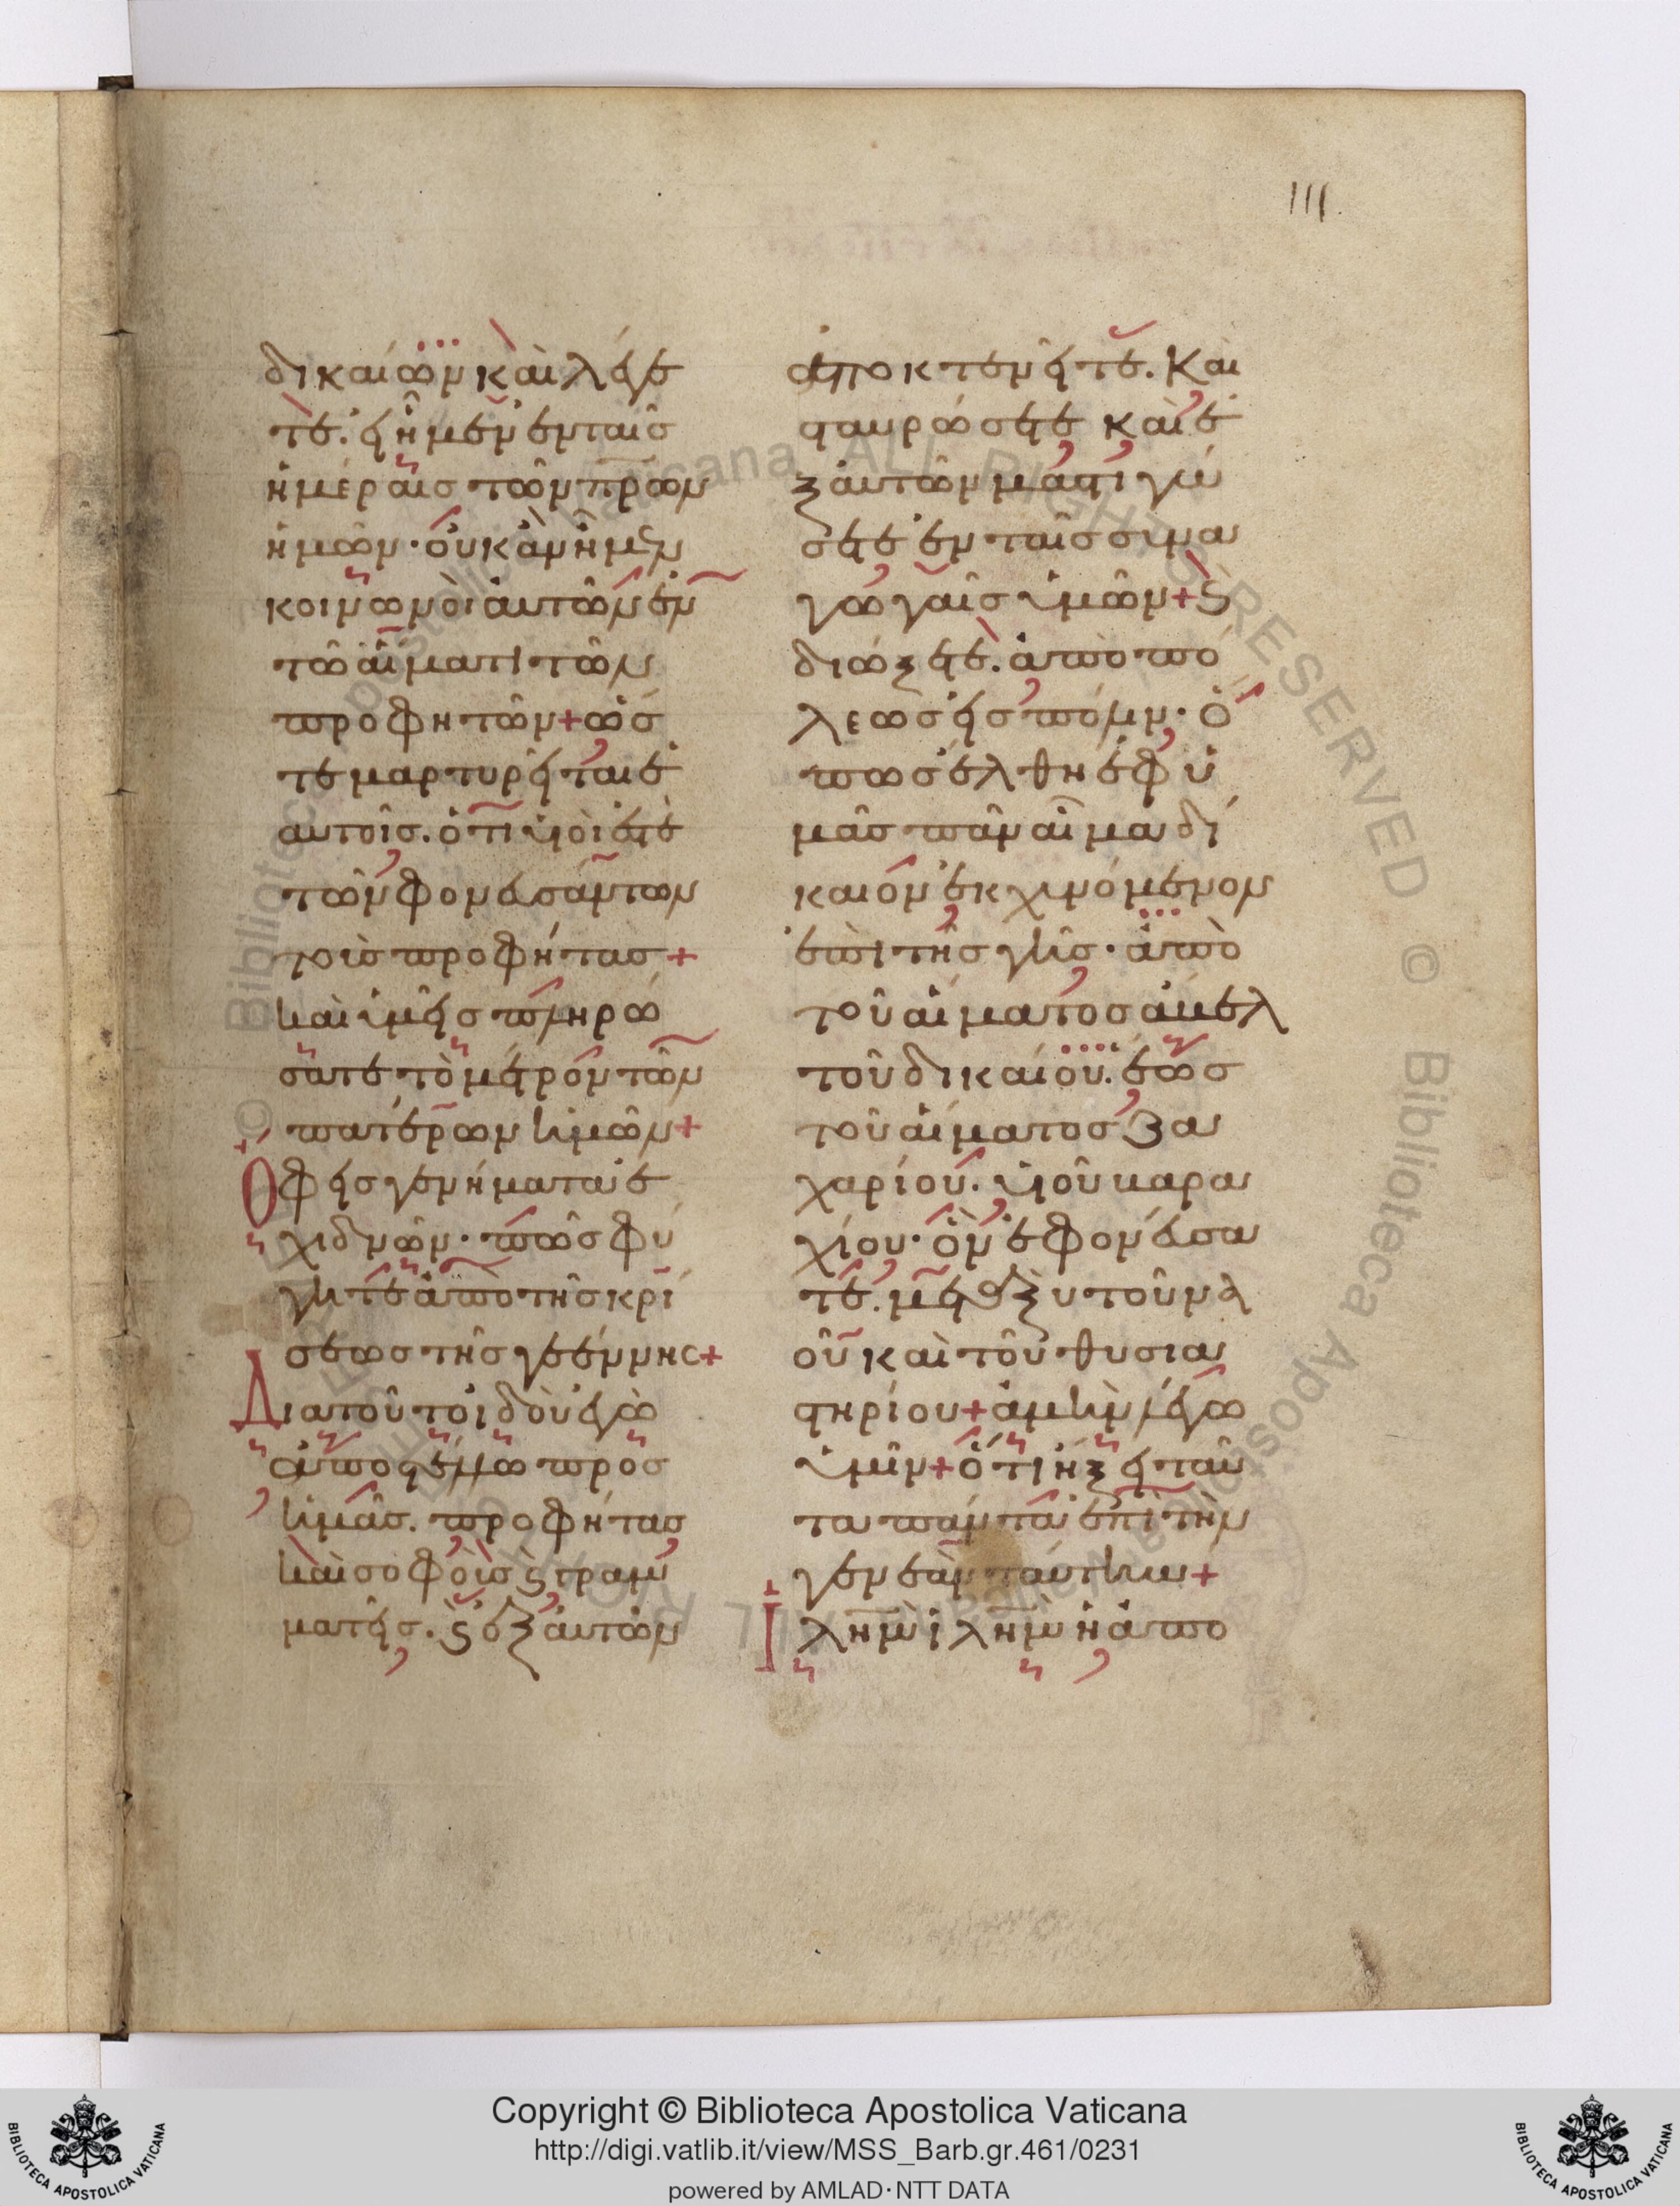 111.
δικαίων καὶ λέγε
τε. εἰ ἦμεν ἐν ταῖς
ἡμέραις τῶν πρων
ἡμῶν· οὐκ ἂν ἦμεν
κοινωνοὶ αὐτῶν ἐν
τῶ αἵματι τῶν
προφητῶν+ὥσ
τε μαρτυρεῖται ἑ
αυτοῖς. ὅτι υἱοί ἐστὲ
τῶν φονευσάντων
τοὺς προφήτας+
καὶ ὑμεῖς πληρώ
σατε τὸ μέτρον τῶν
πατέρων ἡμῶν+
Οφεις γεννήματα ἐ
χιδνῶν· πῶς φύ
γητε ἀπὸ τῆς κρί
σεως τῆς γεέννης+
Διατοῦτο ἰδοὺ ἐγὼ
ἀποστέλλω πρὸς
ἡμᾶς. προφήτας
καὶ σοφοὺς ϗ γραμ
ματεῖς. ϗ ἐξ αὐτῶν
ἀποκτενεῖτε. Καὶ
σταυρώσετε καὶ ἐ
ξ αὐτῶν μαστιγώ
σετε ἐν ταῖς συνα
γωγαῖς ὑμῶν+ϗ
διώξετε. ἀπὸ πό
λεως εἰς πόλιν· ὅ
πως ἔλθη ἐφ ὑ
μᾶς πᾶν αἷμα δί
καιον ἐκχυνόμενον
ἐπὶ τῆς γῆς· ἀπὸ
τοῦ αἵματος ἄβελ
τοῦ δικαίου. ἕως
τοῦ αἵματος Ζα
χαρίου. υἱοῦ βαρα
χίου· ὃν ἐφονεύσα
τε. μεταξὺ τοῦ να
οῦ καὶ τοῦ θυσια
στηρίου+ἀμὴν λέγω
ὑμῖν+ὅτι ἥξει ταῦ
τα πάντα ἐπὶ τὴν
γενεὰν ταύτην+
Ιλημ ιλημ ἡ ἀπο
Copyright © Biblioteca Apostolica Vaticana
http://digi.vatlib.it/view/MSS_Barb.gr.461/0231
powered by AMLAD·NTT DATA